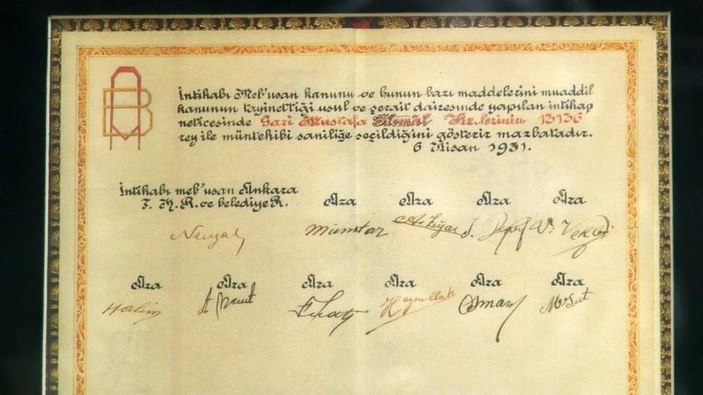 İntihabı Meb'usan kanunu ve bunun bazı maddelerini muaddil
kanunun tayinettiği usul ve şerait dairesinde yapılan intihap
neticesinde Gazi Mustafa Kemâl Hz.lerinin 13136
rey ile müntehibi saniliğe seçildiğini gösterir mazbatadır.
6 Nisan 1931.
İntihabı meb'usan Ankara Aza Aza Aza Aza
T. H. R. ve belediye R.
Mümtaz
Aza Aza Aza Aza Aza Aza
Halim Osman